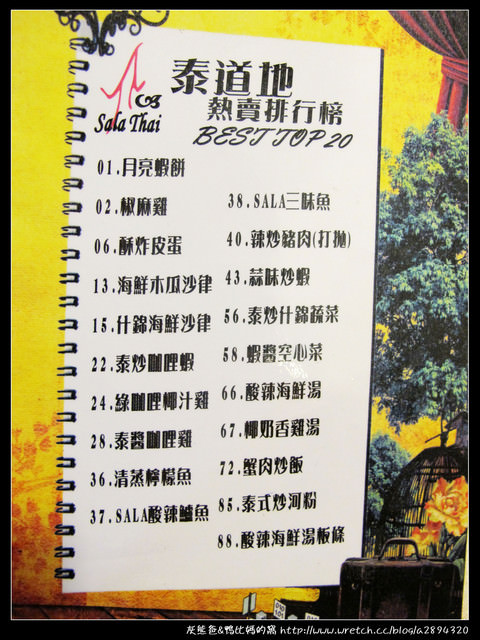 Sala Thai
泰道地
熱賣排行榜
BEST TOP 20
01.月亮蝦餅
02.椒麻雞
06.酥炸皮蛋
13.海鮮木瓜沙律
15.什錦海鮮沙律
22.泰炒咖哩蝦
24.綠咖哩椰汁雞
28.泰醬咖哩雞
36.清蒸檸檬魚
37.SALA酸辣鱸魚
38.SALA三味魚
40.辣炒豬肉(打拋)
43.蒜味炒蝦
56.泰炒什錦蔬菜
58.蝦醬空心菜
66.酸辣海鮮湯
67.椰奶香雞湯
72.蟹肉炒飯
85.泰式炒河粉
88.酸辣海鮮湯粄條
灰熊爸&鴨比媽的窩 http://www.wretch.cc/blog/a2894320